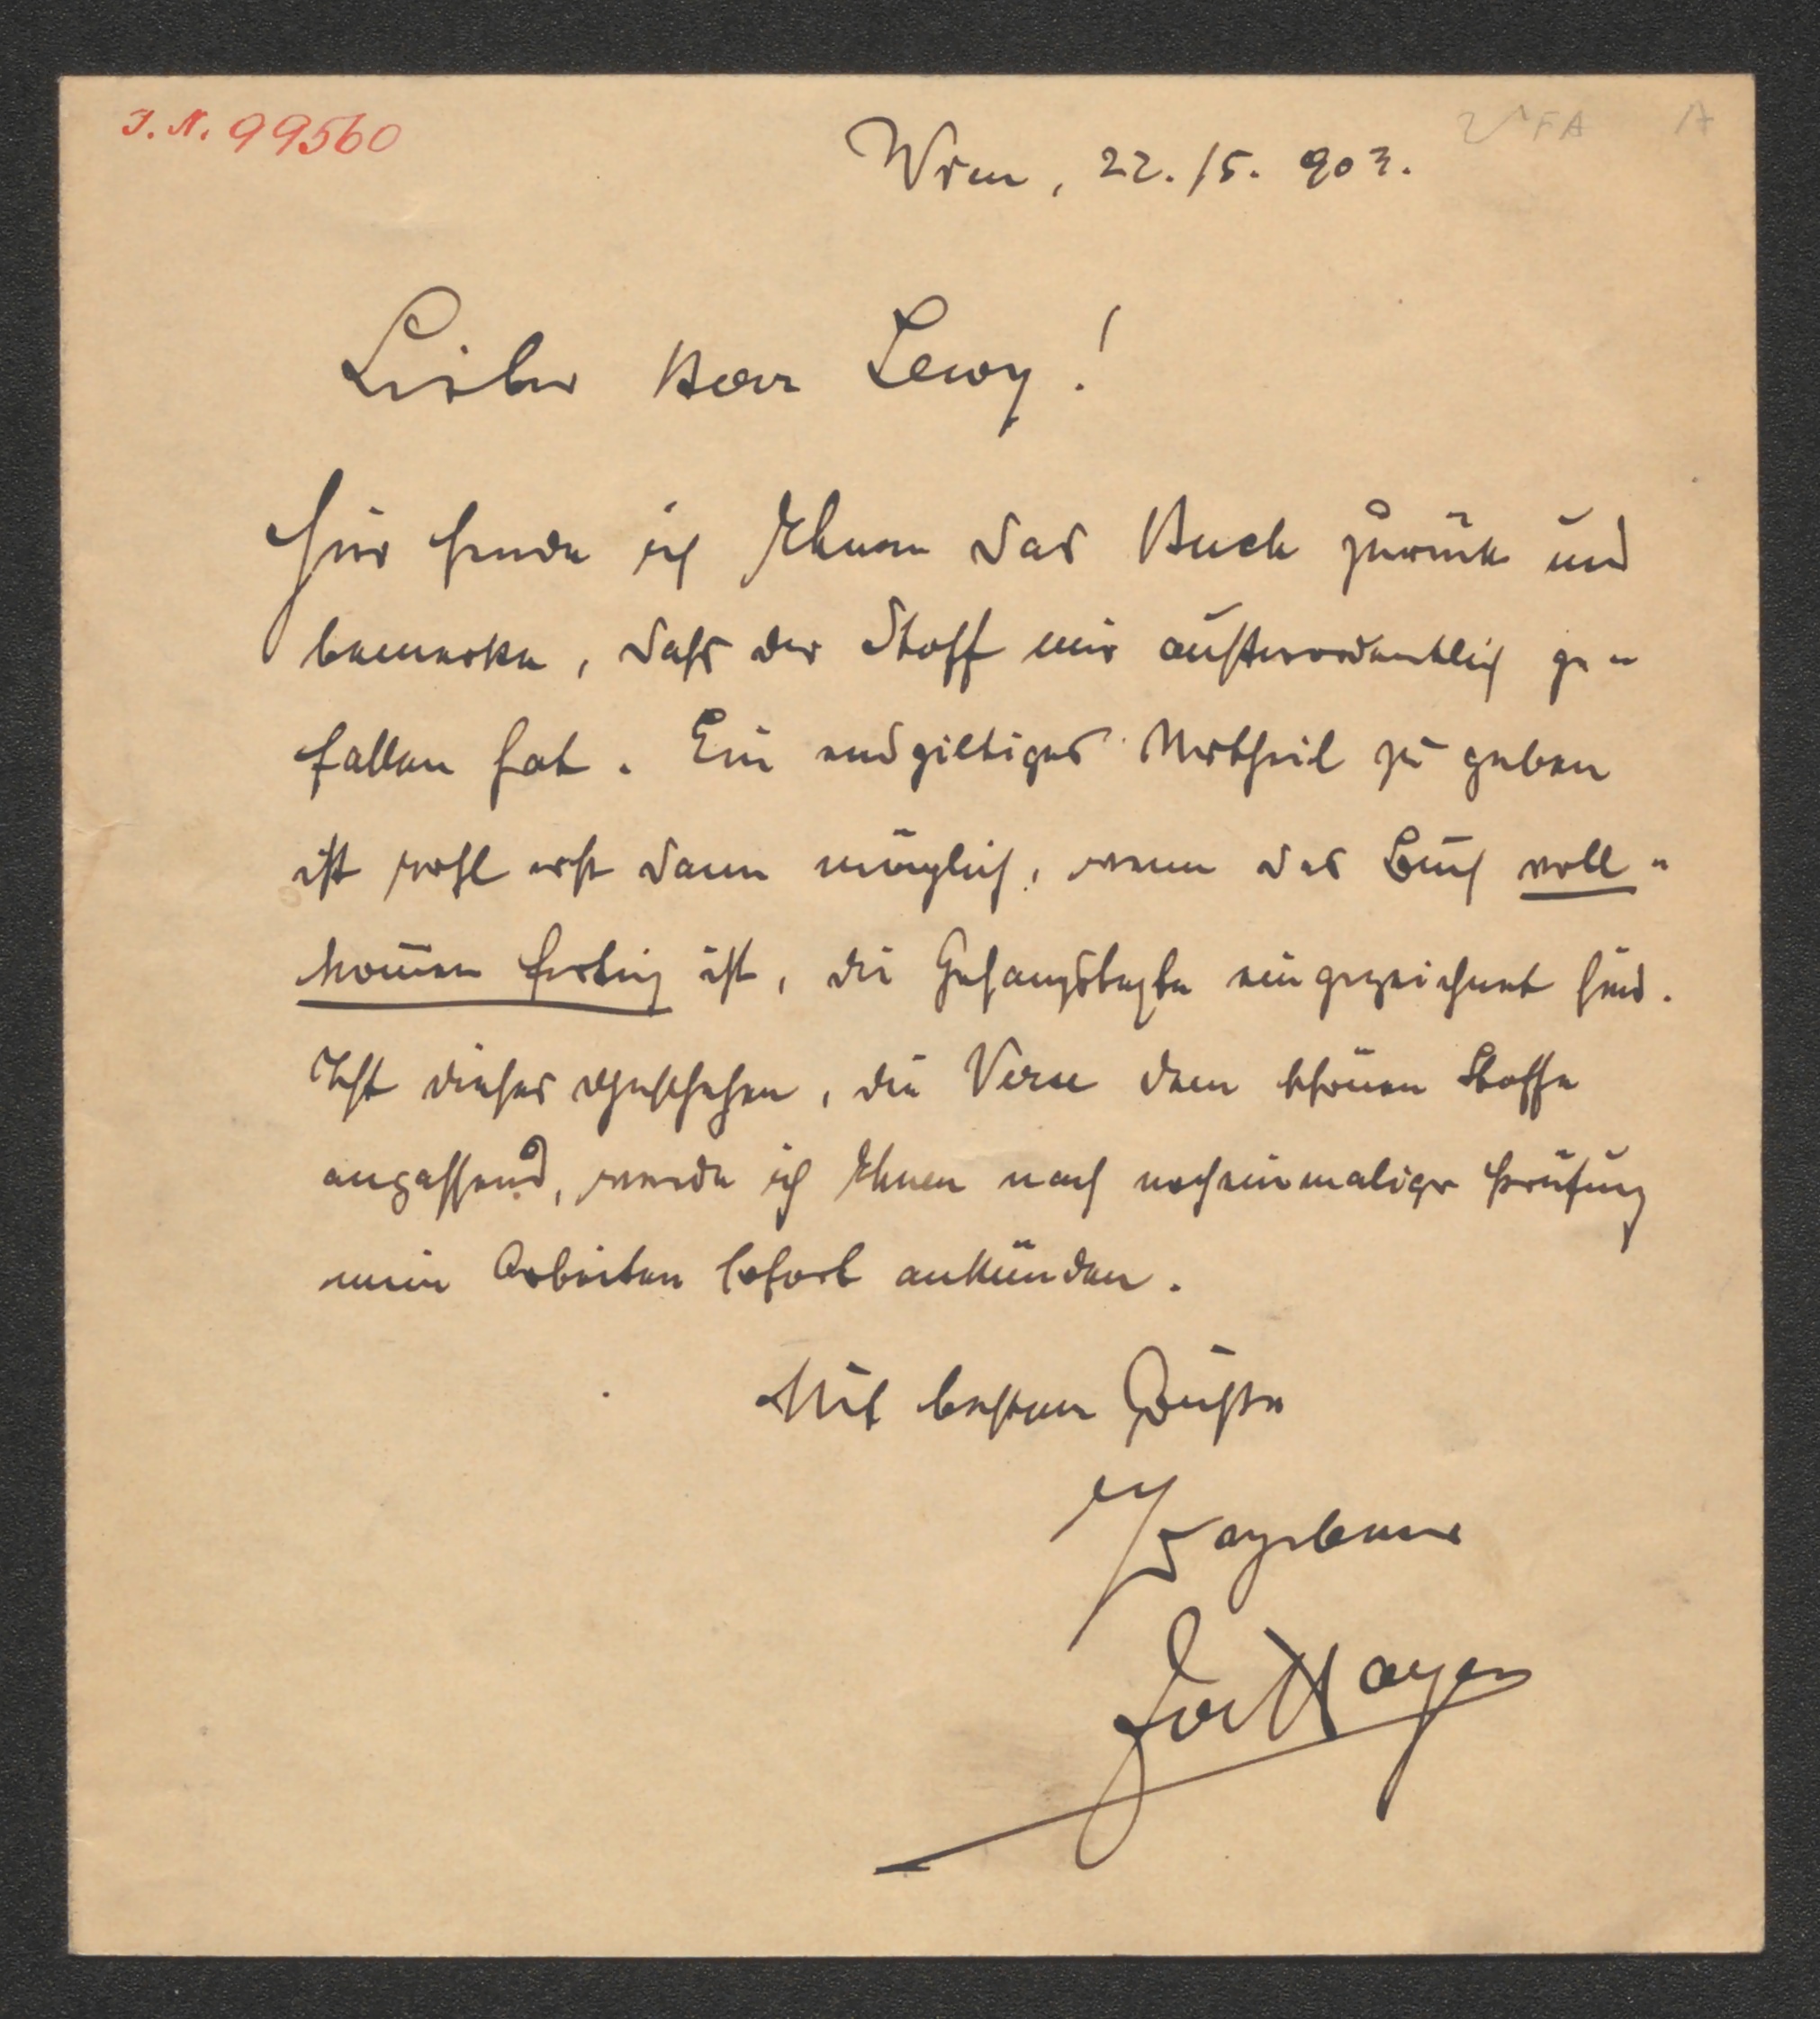 J. N. 99560
Wien, 22./5. 903.
Lieber Herr Lewy!
Hier sende ich Ihnen das Buch zurück und
bemerke, daß der Stoff mir außerordentlich ge-
fallen hat. Ein endgiltiges Urtheil zu geben
ist wohl erst dann möglich, wenn das Buch voll-
kom̅en fertig ist, die Gesangstexte eingezeichnet sind.
Ist dieses geschehen, die Verse dem schönen Stoffe
anpassend, werde ich Ihnen nach nocheinmaliger Prüfung
mein Arbeiten sofort ankünden.
Mit besten Grüßen
Ihr
ergebener
Jos Bayer